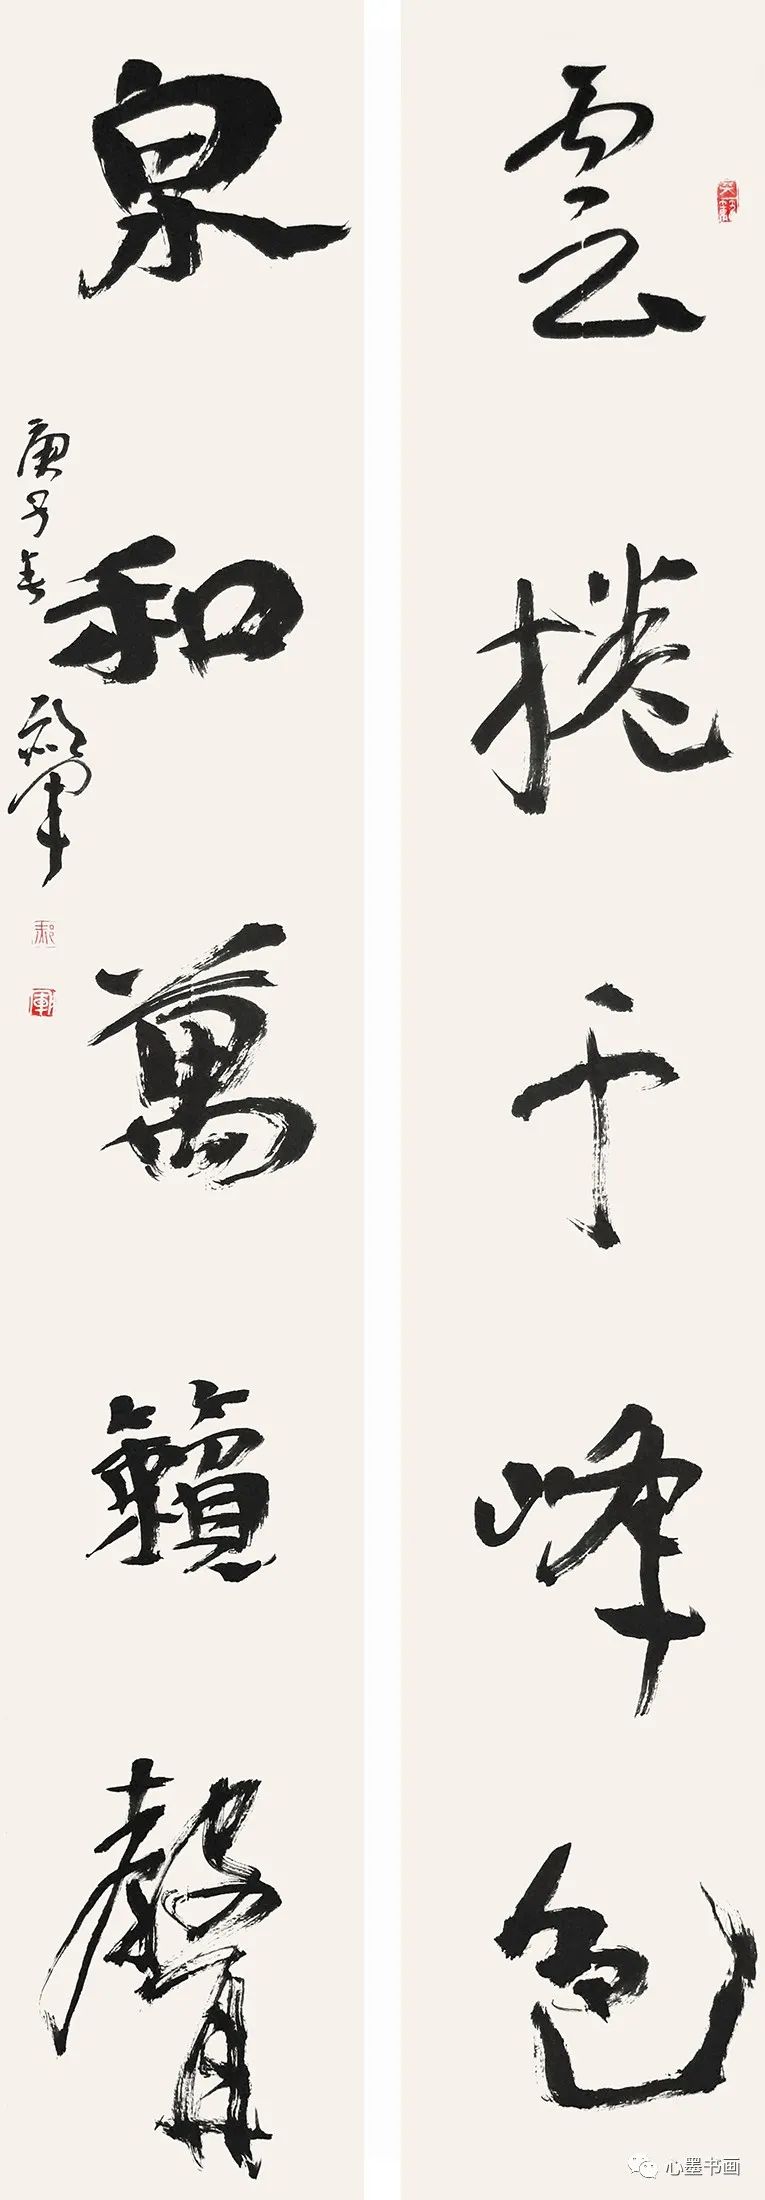 雲捲千峰色
泉和萬籟聲
庚子春
心墨书画